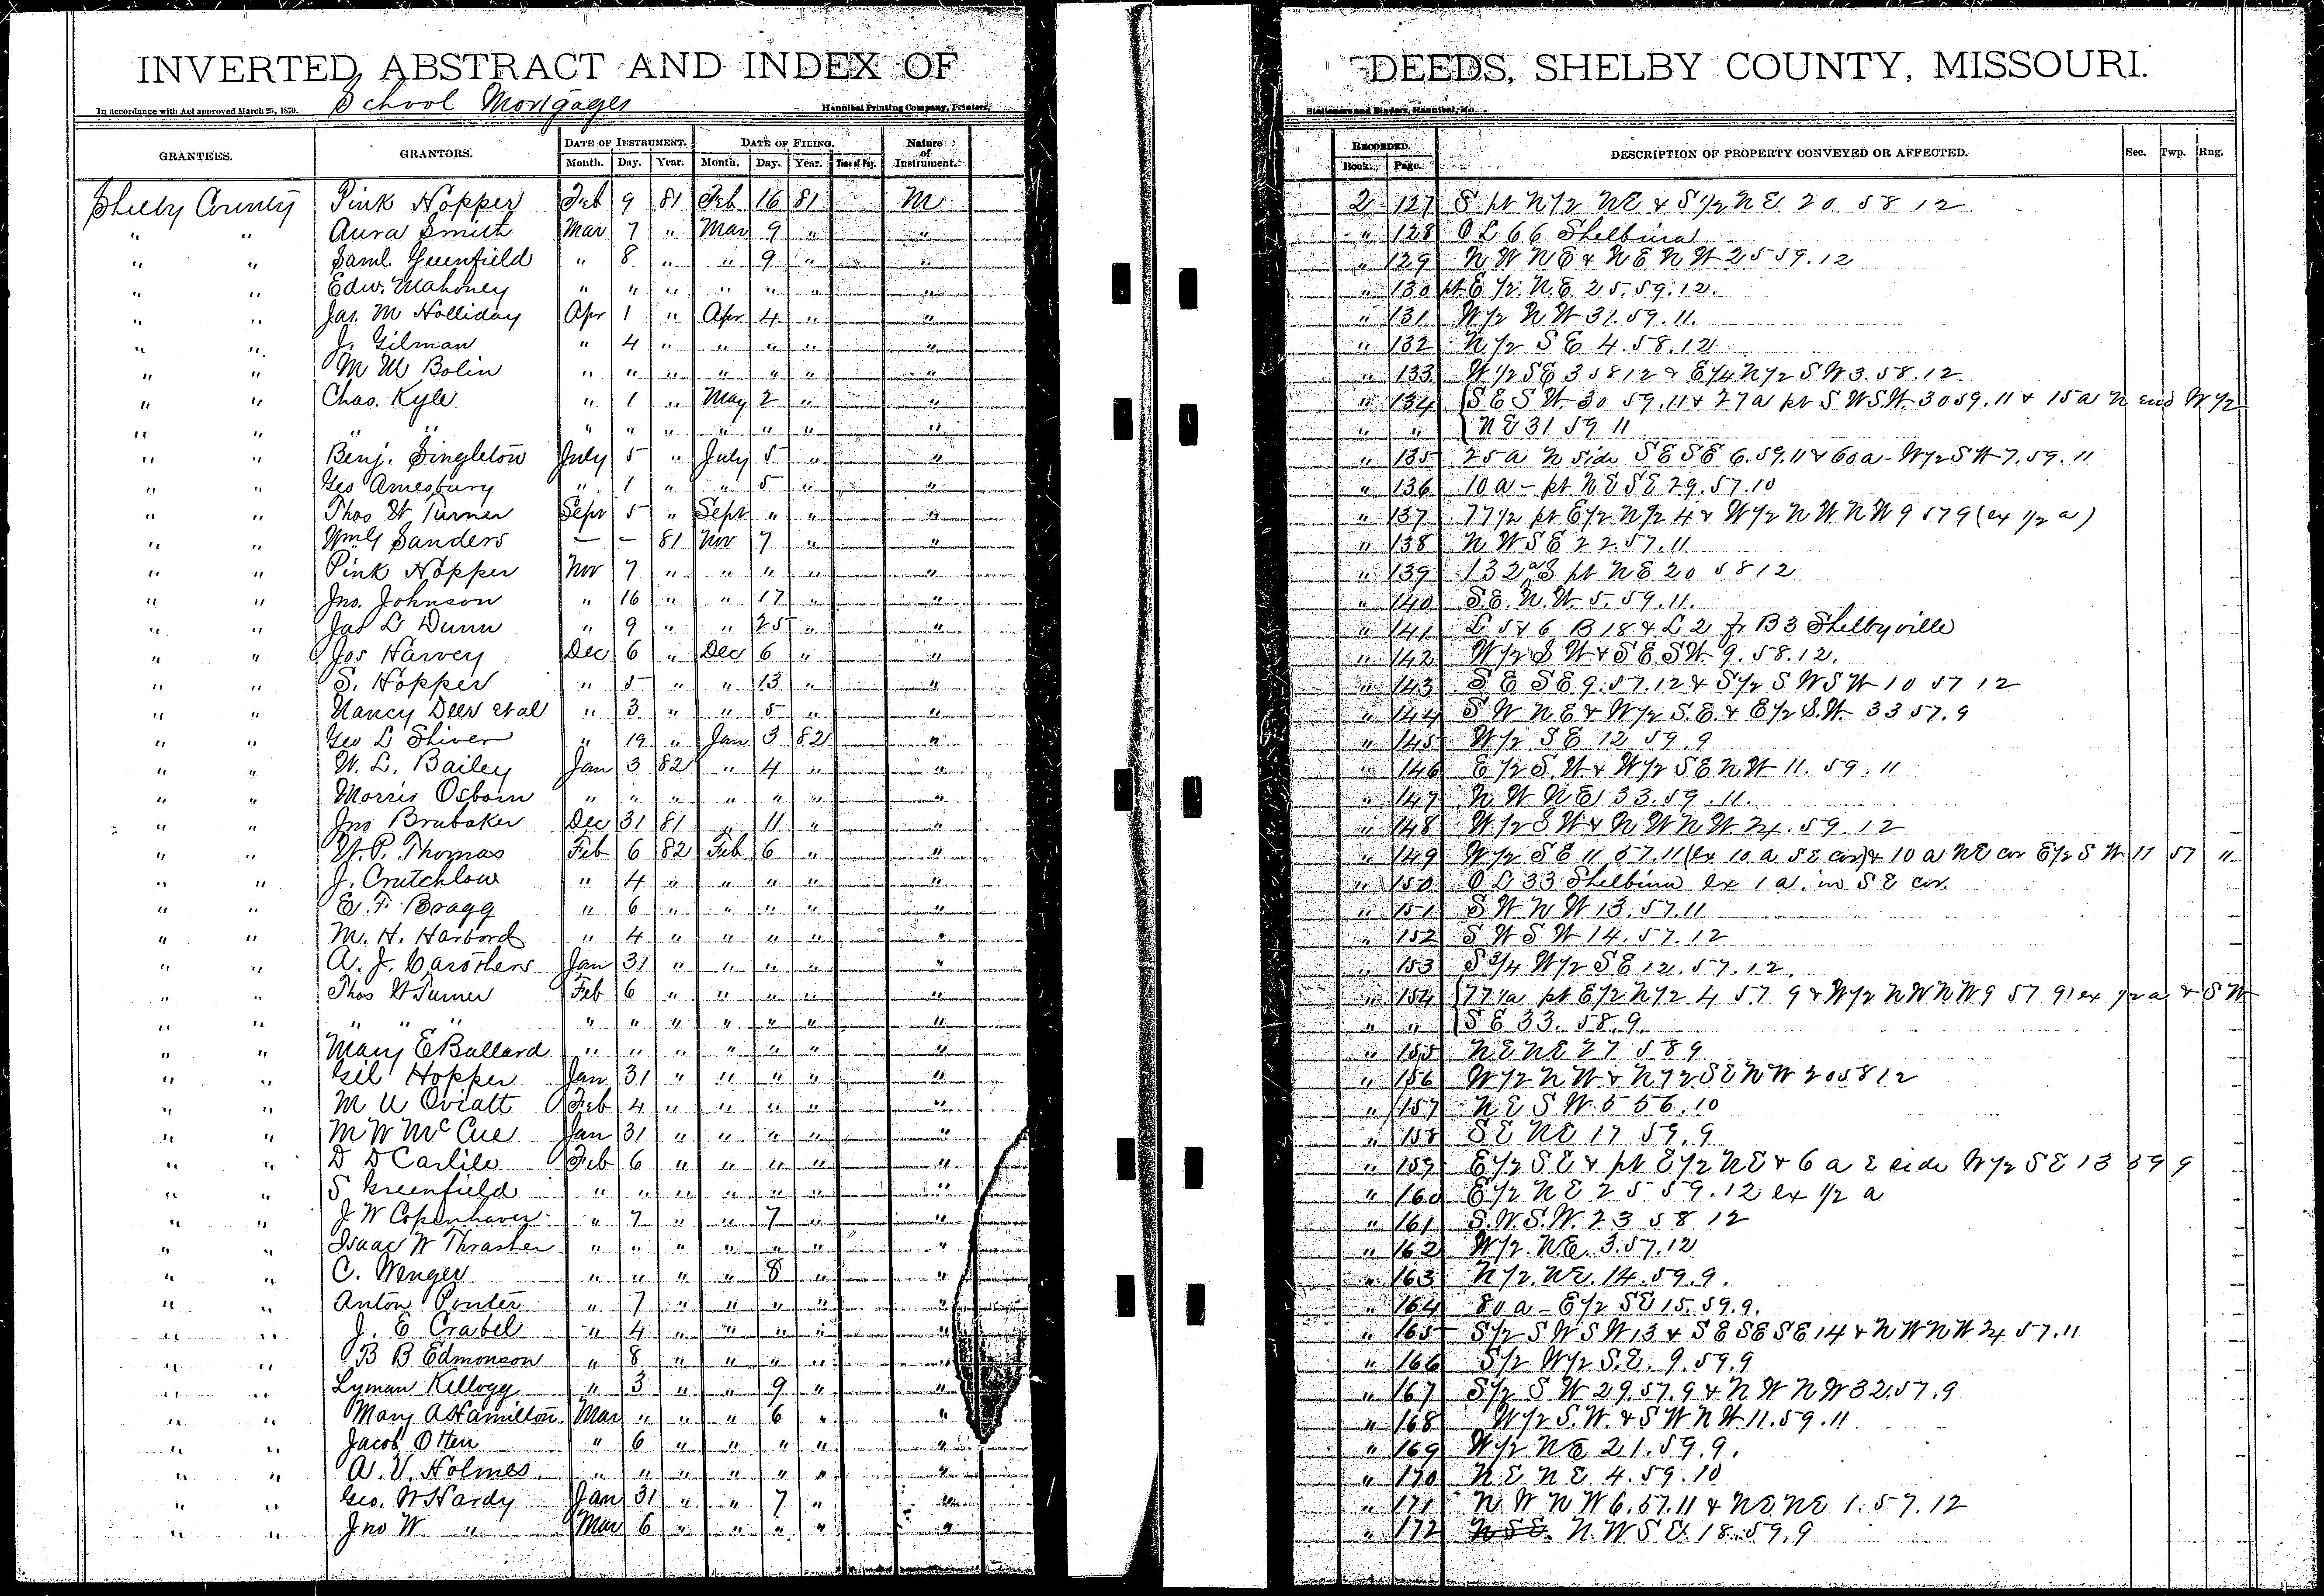 INVERTED ABSTRACT AND INDEX OF DEEDS, SHELBY COUNTY, MISSOURI.
In accordance with Act approved March 25, 1870. School Mortgages Hannibal Printing Company, Printers, Stationers and Binders, Hannibal, Mo.
GRANTEES. GRANTORS. DATE OF INSTRUMENT. DATE OF FILING. Nature of Instrument. RECORDED. DESCRIPTION OF PROPERTY CONVEYED OR AFFECTED. Sec. Twp. Rng.
Month. Day. Year. Month. Day. Year. Time of Day. Book. Page.
Shelby County Pink Hopper Feb 9 81 Feb 16 81 M 2 127 S pt N 1/2 NE & S 1/2 NE 20 58 12
" " Aura Smith Mar 7 " Mar 9 " " " 128 O L 66 Shelbina
" " Saml. Greenfield " 8 " " 9 " " " 129 N W N E & N E N W 25 59.12
" " Edw. Mahoney " " " " " " " " 130 pt E 1/2 N.E. 25.59.12.
" " Jas. M Holliday Apr 1 " Apr 4 " " " 131 W 1/2 N W 31.59.11.
" " J. Gilman " 4 " " " " " " 132 N 1/2 S E 4.58.12
" " M M Bolin " " " " " " " " 133 W 1/2 S E 3 58 12 & E 1/4 N 1/2 S W 3.58.12
" " Chas. Kyle " 1 " May 2 " " " 134 S E S W 30 59.11 & 27 a pt S W S.W. 30 59.11 & 15 a N end W 1/2
" " " " " " " " " " " " " N E 31 59 11
" " Benj. Singleton July 5 " July 5 " " " 135 25 a N side S E S E 6.59.11 & 60 a - W 1/2 S W 7.59.11
" " Geo Amesbury " 1 " " 5 " " " 136 10 a - pt N E S E 29.57.10
" " Thos W Turner Sept 5 " Sept " " " " 137 77 1/2 pt E 1/2 N 1/2 4 & W 1/2 N W N W 9 57 9 (ex 1/2 a)
" " Sanders — — 81 Nov 7 " " " 138 N W S E 22.57.11
" " Pink Hopper Nov 7 " " " " " " 139 132 a S pt N E 20 58 12
" " Jno. Johnson " 16 " " 17 " " " 140 S.E. N.W. 5.59.11.
" " Jas L Dunn " 9 " " 25 " " " 141 L 5 & 6 B 18 & L 2 B 3 Shelbyville
" " Jos Harvey Dec 6 " Dec 6 " " " 142 W 1/2 S W & S E S W 9.58.12.
" " S. Hopper " 5 " " 13 " " " 143 S E S E 9.57.12 & S 1/2 S W S W 10 57 12
" " Nancy Deer et al " 3 " " 5 " " " 144 S W N E & W 1/2 S.E. & E 1/2 S.W. 33 57.9
" " Geo L Shiver " 19 " Jan 3 82 " " 145 W 1/2 S E 12 59.9
" " W. L. Bailey Jan 3 82 " 4 " " " 146 E 1/2 S.W. & W 1/2 S E N W 11.59.11
" " Morris Osborn " " " " " " " " 147 N W N E 33.59.11.
" " Jno Brubaker Dec 31 81 " 11 " " " 148 W 1/2 S W & N W N W 24.59.12
" " W. P. Thomas Feb 6 82 Feb 6 " " " 149 W 1/2 S E 11 57.11 (ex 10 a S E cor) & 10 a N E cor E 1/2 S W 11 57 "
" " J. Crutchlow " 4 " " " " " " 150 O L 33 Shelbina ex 1 a. in S E cor.
" " E. F. Bragg " 6 " " " " " " 151 S W N W 13.57.11
" " M. H. Harbord " 4 " " " " " " 152 S W S W 14.57.12
" " A. J. Carothers Jan 31 " " " " " " 153 S 3/4 W 1/2 S E 12.57.12.
" " Thos W Turner Feb 6 " " " " " " 154 77 1/2 a pt E 1/2 N 1/2 4 57 9 & W 1/2 N W N W 9 57 9 ex 1/2 a & S W
" " " " " " " " " " " " " " S E 33.58.9.
" " Mary E Ballard " " " " " " " " 155 N E N E 27 58 9
" " Gil Hopper Jan 31 " " " " " " 156 W 1/2 N W & N 1/2 S E N W 20 58 12
" " M U Oviatt Feb 4 " " " " " " 157 N E S W 5 56.10
" " M W McCue Jan 31 " " " " " " 158 S E N E 17 59.9
" " D D Carlile Feb 6 " " " " " " 159 E 1/2 S E & pt E 1/2 N E & 6 a E side W 1/2 S E 13 59 9
" " S Greenfield " " " " " " " " 160 E 1/2 N E 25 59.12 ex 1/2 a
" " J W Copenhaver " 7 " " 7 " " " 161 S.W.S.W. 23 58 12
" " Isaac W Thrasher " " " " " " " " 162 W 1/2 N.E. 3.57.12
" " C. Wenger " " " " 8 " " " 163 N 1/2 N E. 14.59.9.
" " Anton Ponter " 7 " " " " " " 164 80 a - E 1/2 S E 15.59.9.
" " J. E Crabel " 4 " " " " " " 165 S 1/2 S W S W 13 & S E S E S E 14 & N W N W 24 57.11
" " B B Edmonson " 8 " " " " " " 166 S 1/2 W 1/2 S.E. 9.59.9
" " Lyman Kellogg " 3 " " 9 " " " 167 S 1/2 S W 29.57.9 & N W N W 32.57.9
" " Mary A Hamilton Mar " " " 6 " " " 168 W 1/2 S.W. & S W N W 11.59.11
" " Jacob Otten " 6 " " " " " " 169 W 1/2 N E 21.59.9.
" " A. V. Holmes " " " " " " " " 170 N E N E 4.59.10
" " Geo. W Hardy Jan 31 " " 7 " " " 171 N W N W 6.57.11 & N E N E 1.57.12
" " Jno W " Mar 6 " " " " " " 172 N.W S E 18.59.9